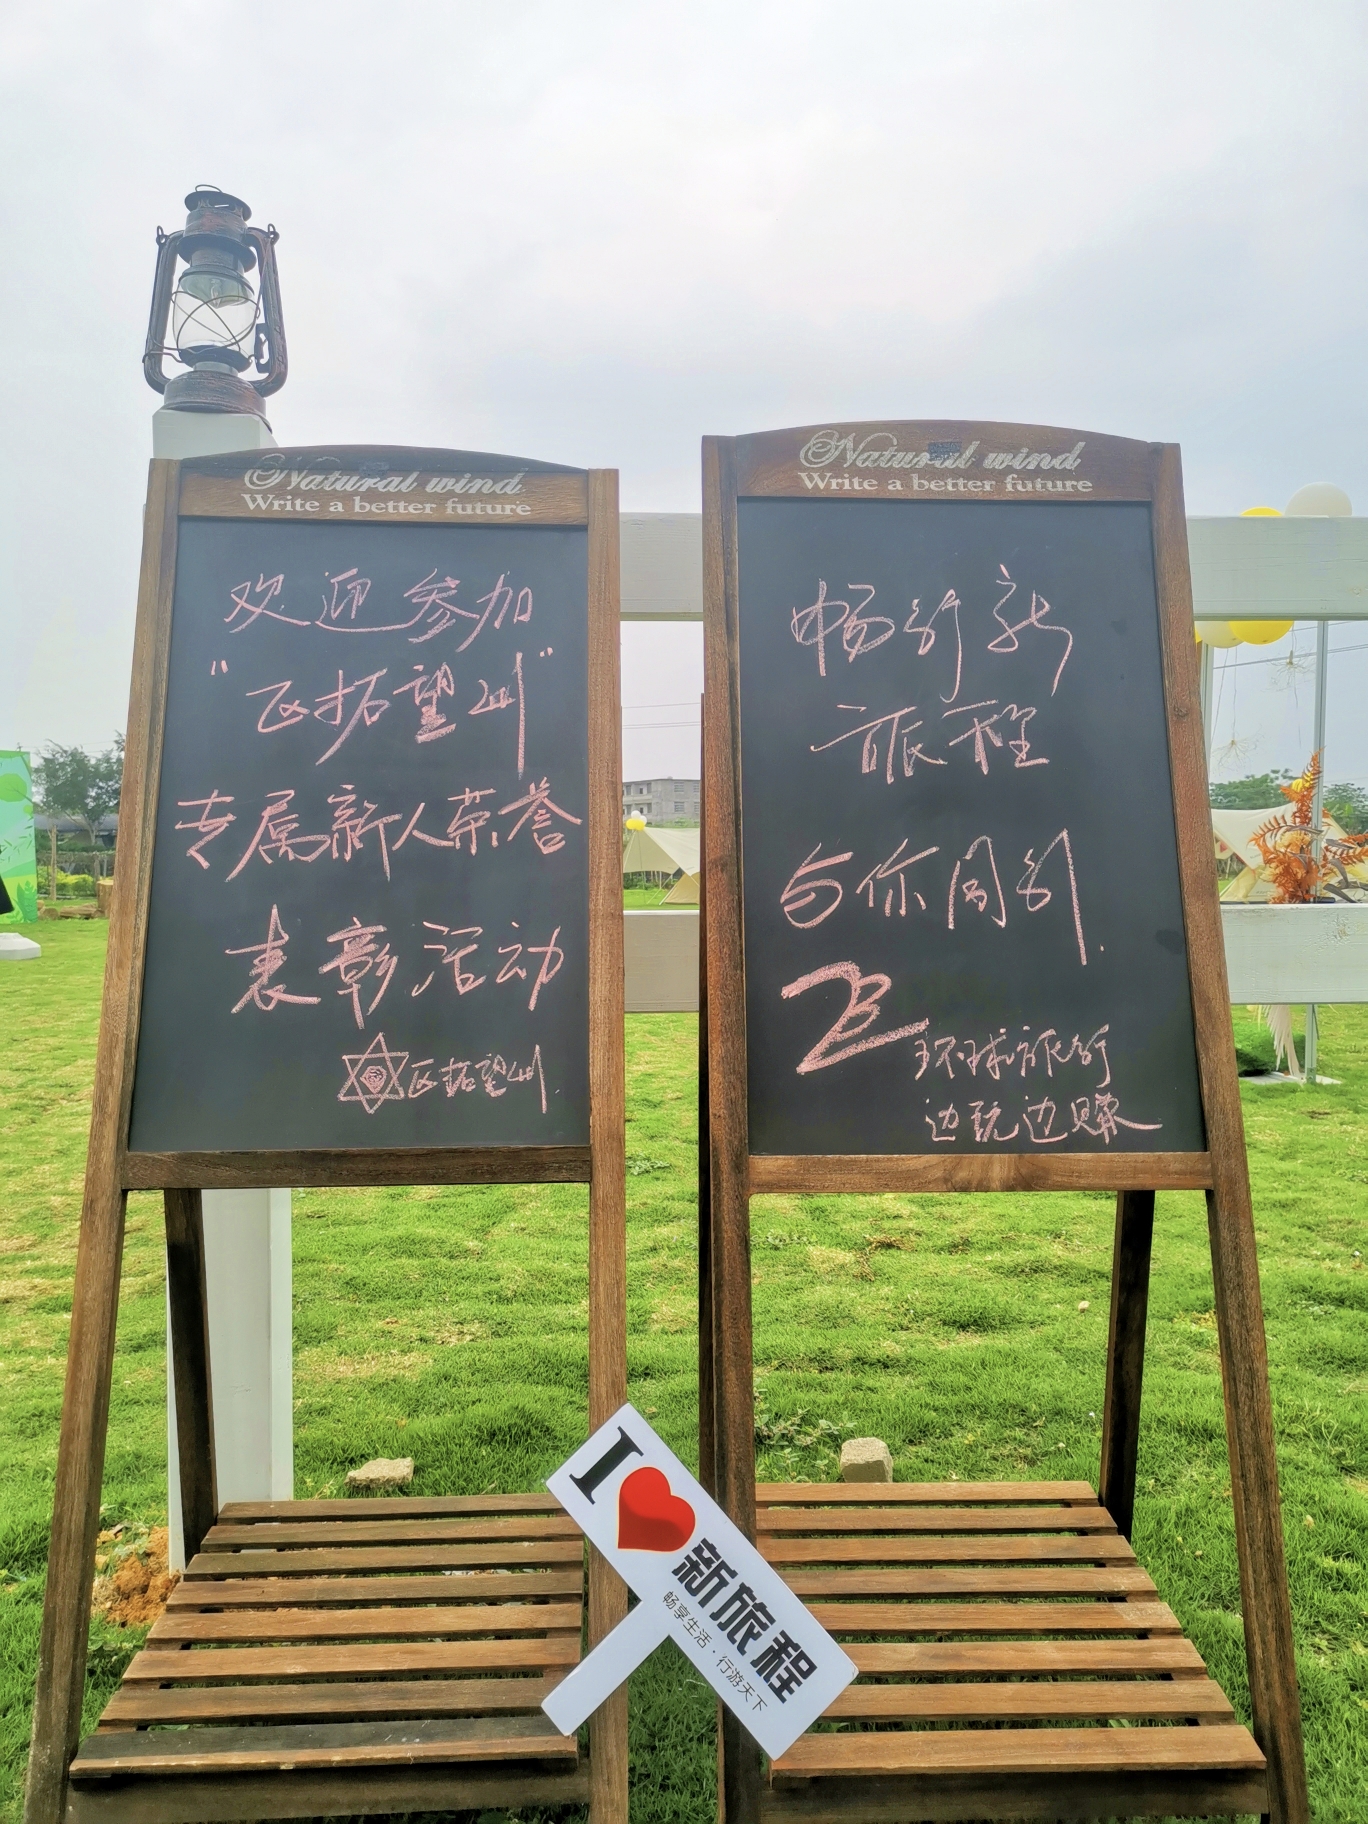 Natural wind
Write a better future
欢迎参加
"拓望州"
专属新人荣誉
表彰活动
拓望州
Natural wind
Write a better future
畅行新
旅程
与你同行.
环球旅行
边玩边赚
I 新旅程
畅享生活·行游天下